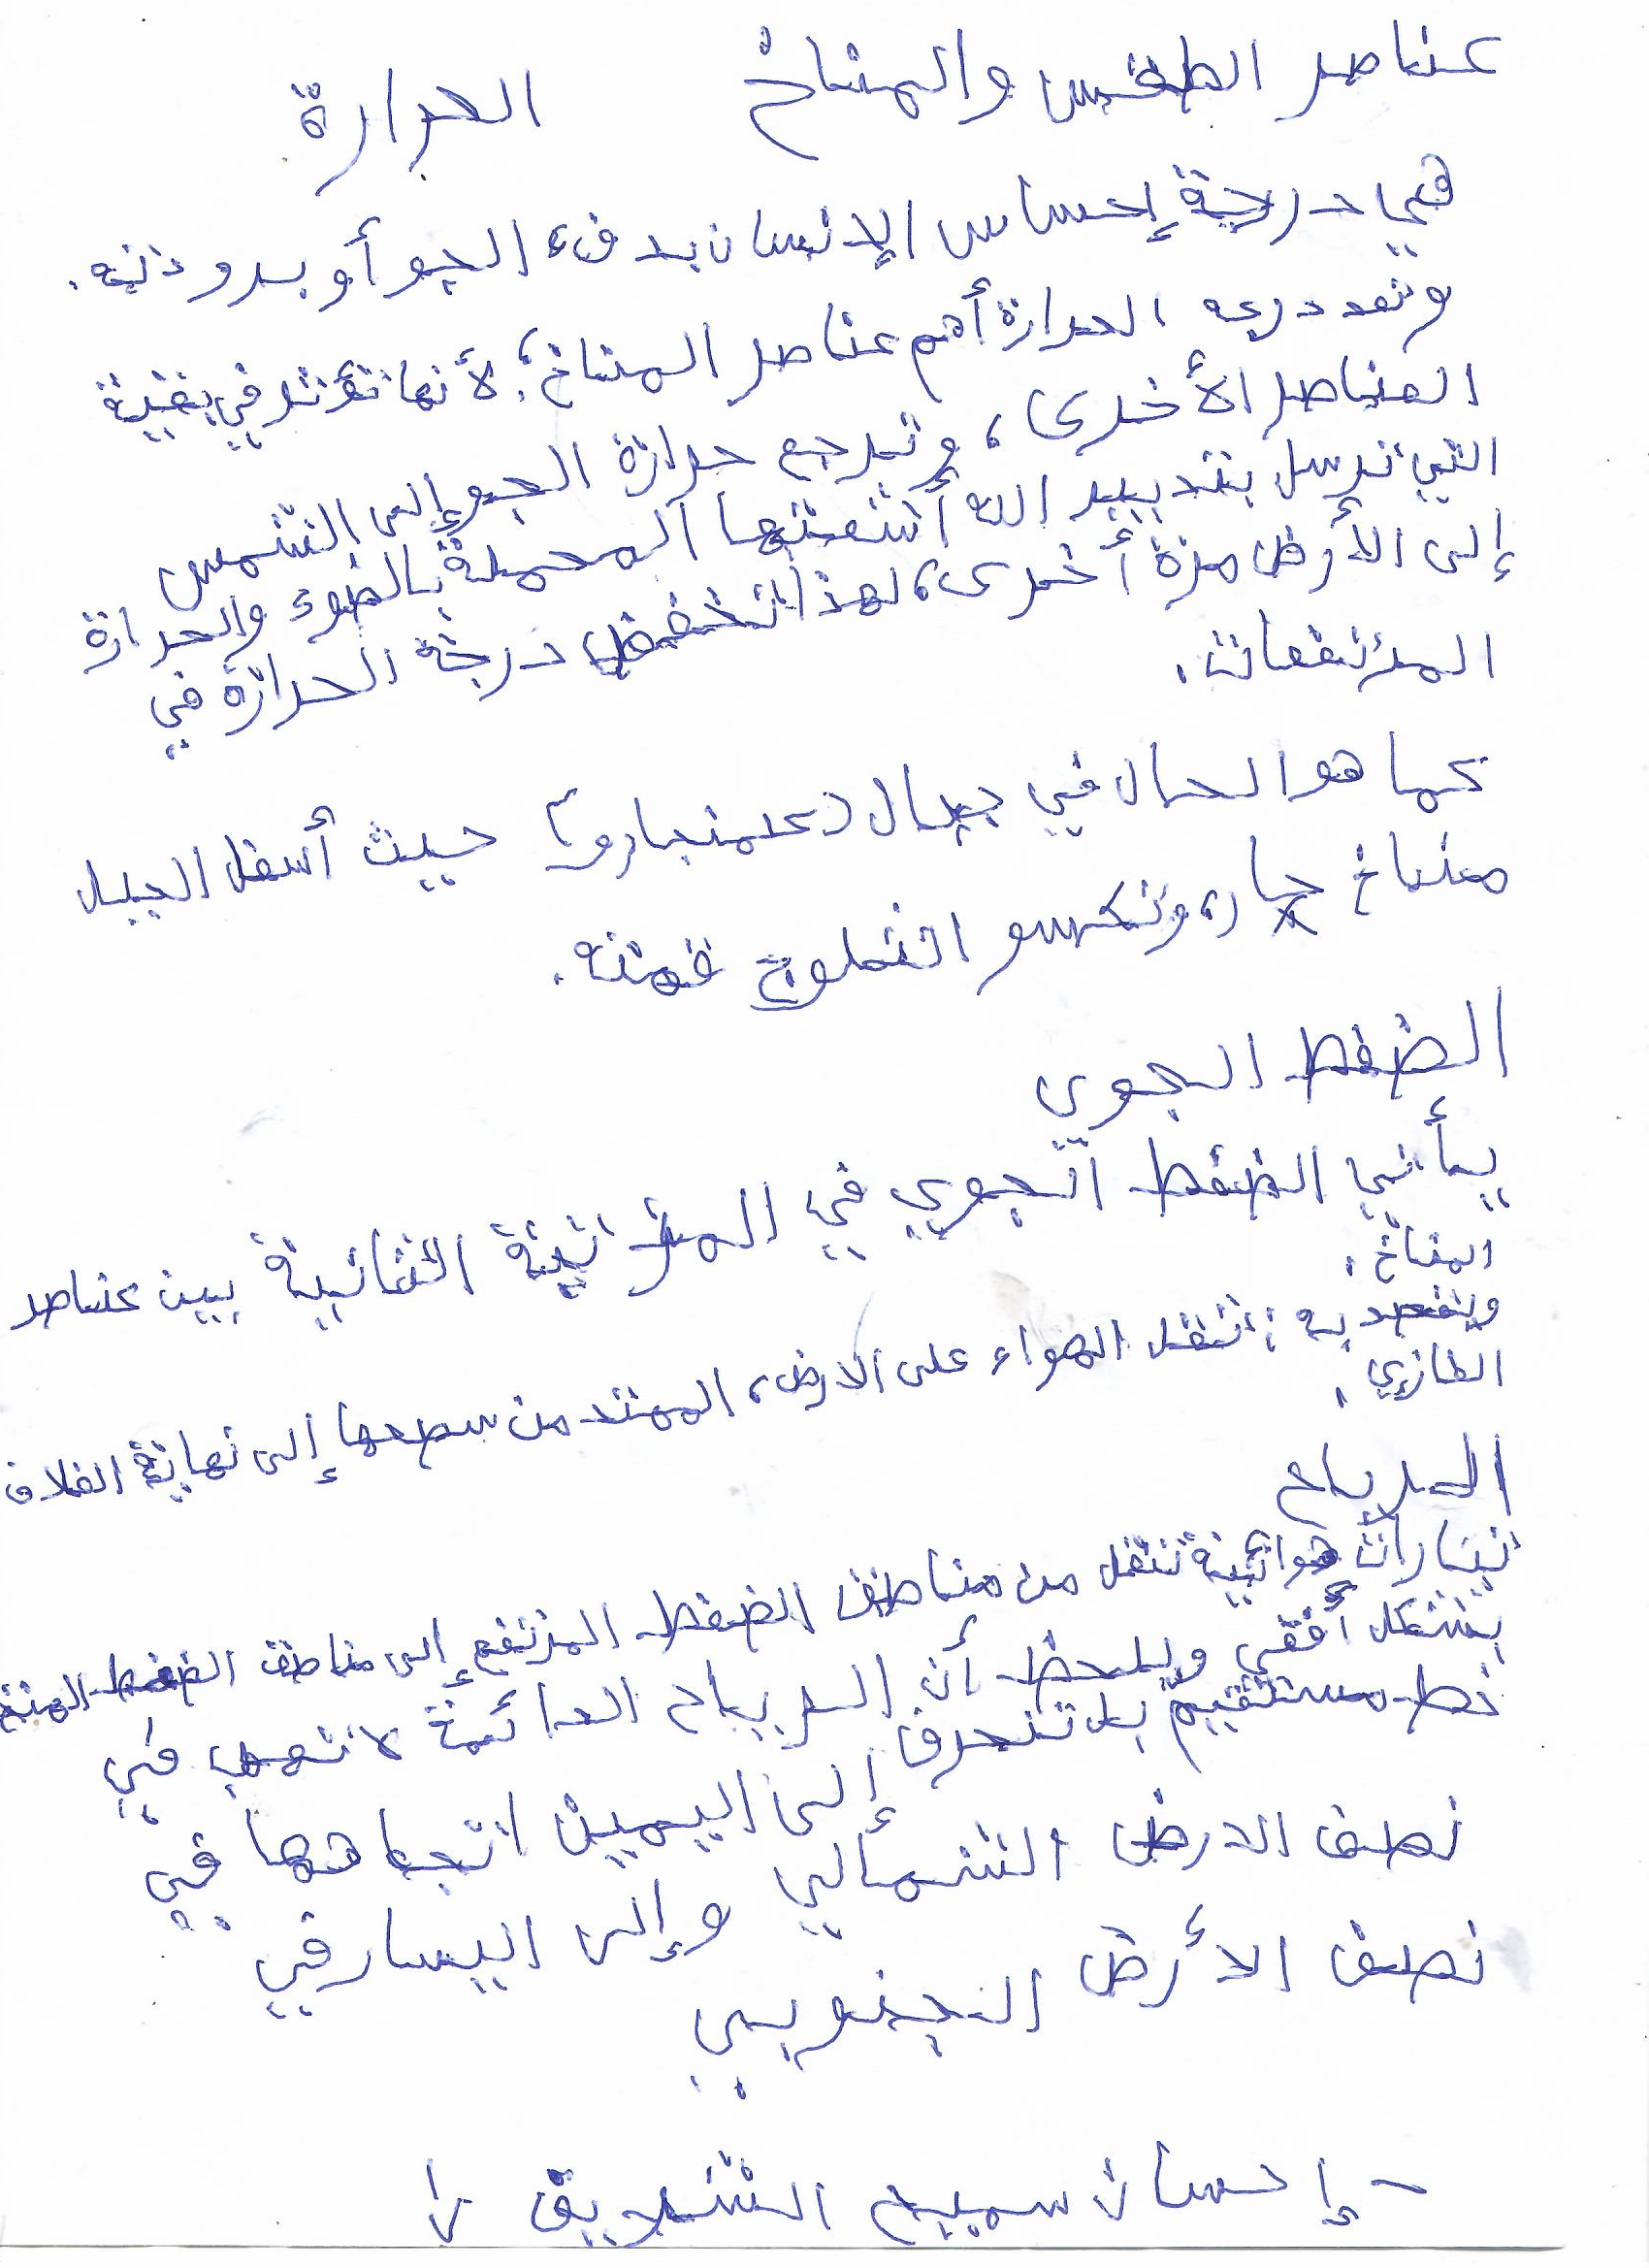 عناصر الطقس والمناخ الحرارة
هي درجة إحساس الإنسان بدفء الجو أو برودته.
وتعد درجة الحرارة أهم عناصر المناخ؛ لأنها تؤثر في بقية
العناصر الأخرى، وترجع حرارة الجو إلى الشمس
التي ترسل بتدبير الله أشعتها المحملة بالضوء والحرارة
إلى الأرض مرة أخرى، لهذا تنخفض درجة الحرارة في
المرتفعات.
كما هو الحال في جبال (كلمنجارو) حيث أسفل الجبل
مناخ حار، وتكسو الثلوج قمته.
الضغط الجوي
يأتي الضغط الجوي في المرتبة الثانية بين عناصر
المناخ.
ويقصد به: ثقل الهواء على الارض، الممتد من سطحها إلى نهاية الغلاف
الغازي.
الرياح
تيارات هوائية تنتقل من مناطق الضغط المرتفع إلى مناطق الضغط المنخ
بشكل أفقي ويلحظ أن الرياح الدائمة لا تهب في
خط مستقيم بل تنحرف إلى اليمين اتجاهها في
نصف الارض الشمالي وإلى اليسار في
نصف الأرض الجنوبي
- إحسان سميح الشلويق